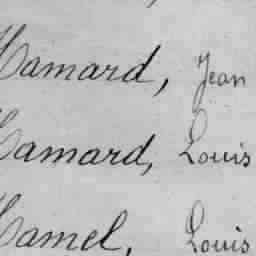 Hamard, Jean
Hamard, Louis
Hamel, Louis